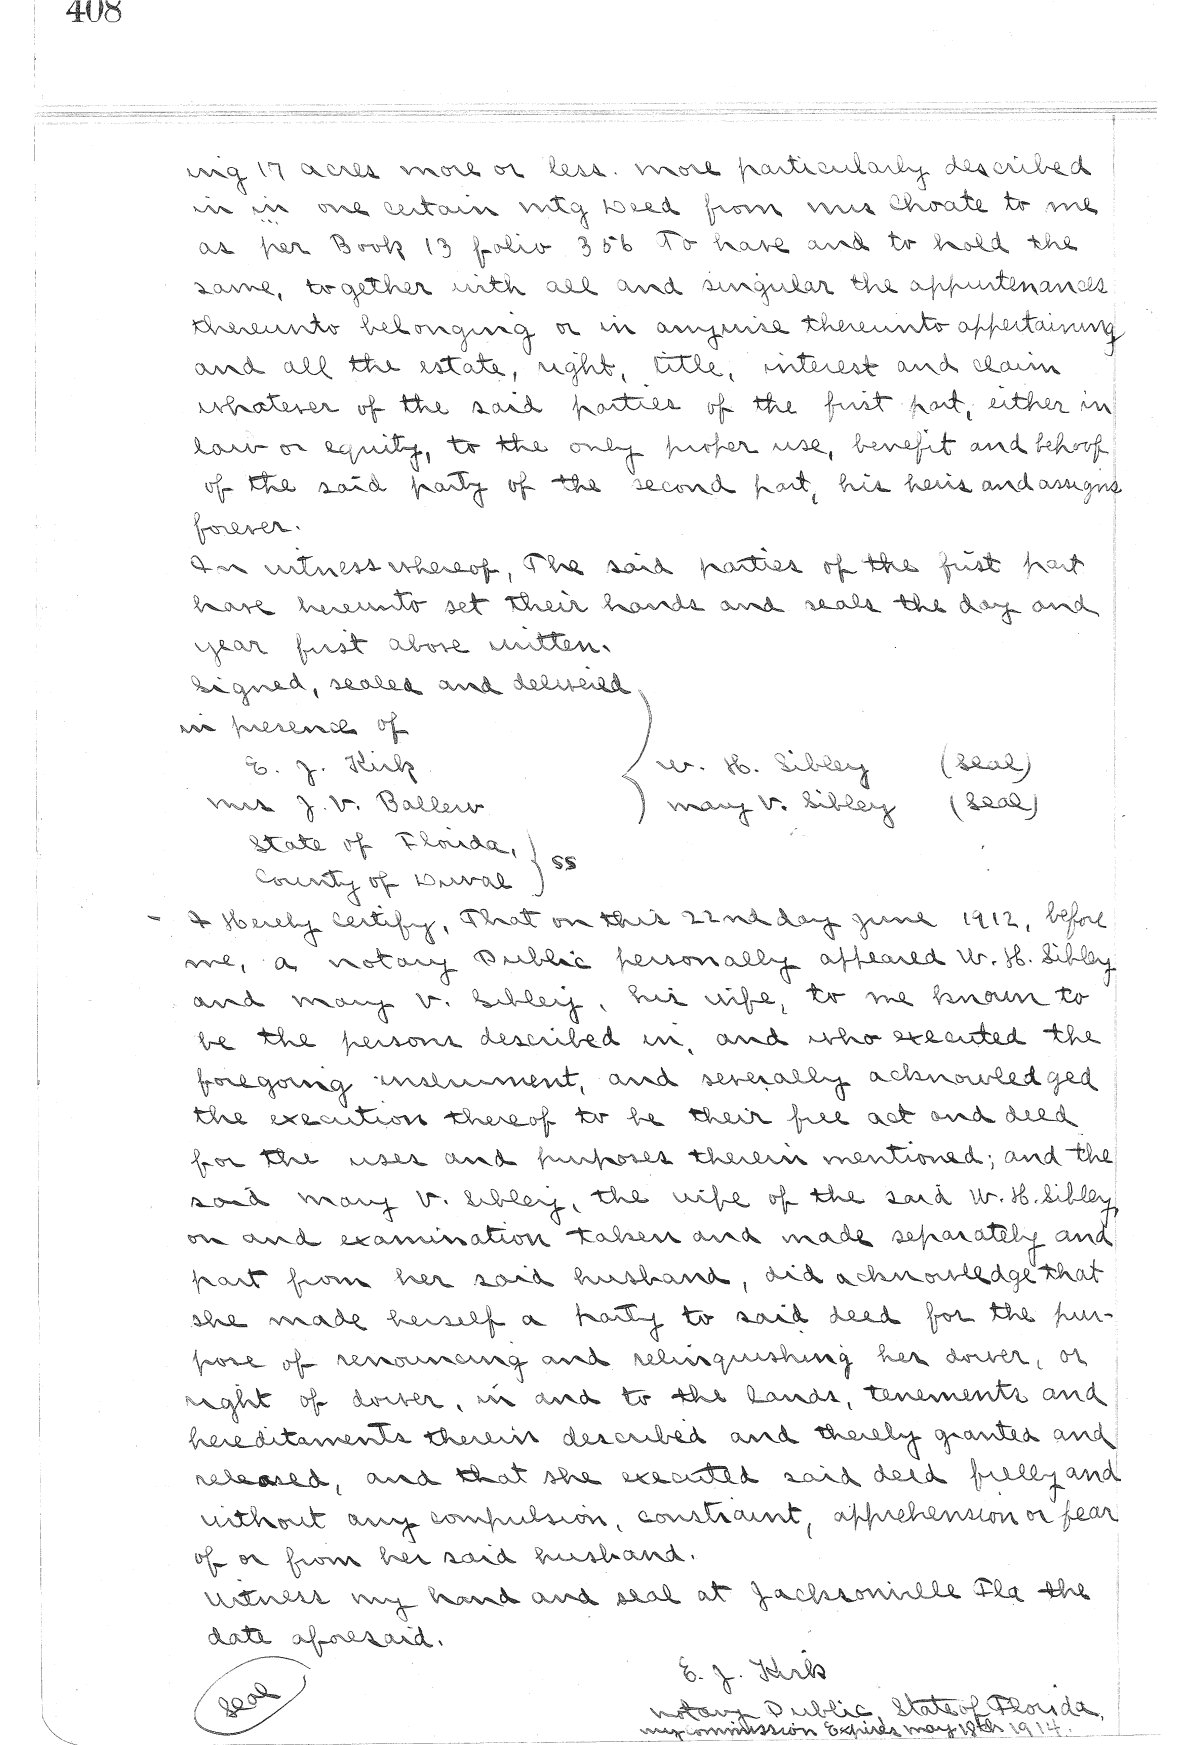 408
ing 17 acres more or less. more particularly described
in in one certain mtg Deed from mrs Choate to me
as per Book 13 folio 356 To have and to hold the
same, together with all and singular the appurtenances
thereunto belonging or in anywise thereunto appertaining
and all the estate, right, title, interest and claim
whatever of the said parties of the first part, either in
law or equity, to the only proper use, benefit and behoof
of the said party of the second part, his heirs and assigns
forever.
In witness whereof, The said parties of the first part
have hereunto set their hands and seals the day and
year first above written.
Signed, sealed and delivered
in presence of
E. J. Kirk
W. H. Sibley (Seal)
mrs J. V. Ballew
mary V. Sibley (Seal)
State of Florida,
County of Duval } SS
- I Hereby Certify, That on this 22nd day June 1912, before
me, a notary Public personally appeared W. H. Sibley
and mary V. Sibley, his wife, to me known to
be the persons described in, and who executed the
foregoing instrument, and severally acknowledged
the execution thereof to be their free act and deed
for the uses and purposes therein mentioned; and the
said mary V. Sibley, the wife of the said W. H. Sibley,
on and examination taken and made separately and
part from her said husband, did acknowledge that
she made herself a party to said deed for the pur-
pose of renouncing and relinquishing her dower, or
right of dower, in and to the lands, tenements and
hereditaments therein described and thereby granted and
released, and that she executed said deed freely and
without any compulsion, constraint, apprehension or fear
of or from her said husband.
Witness my hand and seal at Jacksonville Fla the
date aforesaid.
E. J. Kirk
Seal
notary Public, State of Florida,
my commission Expires may 18th 1914.